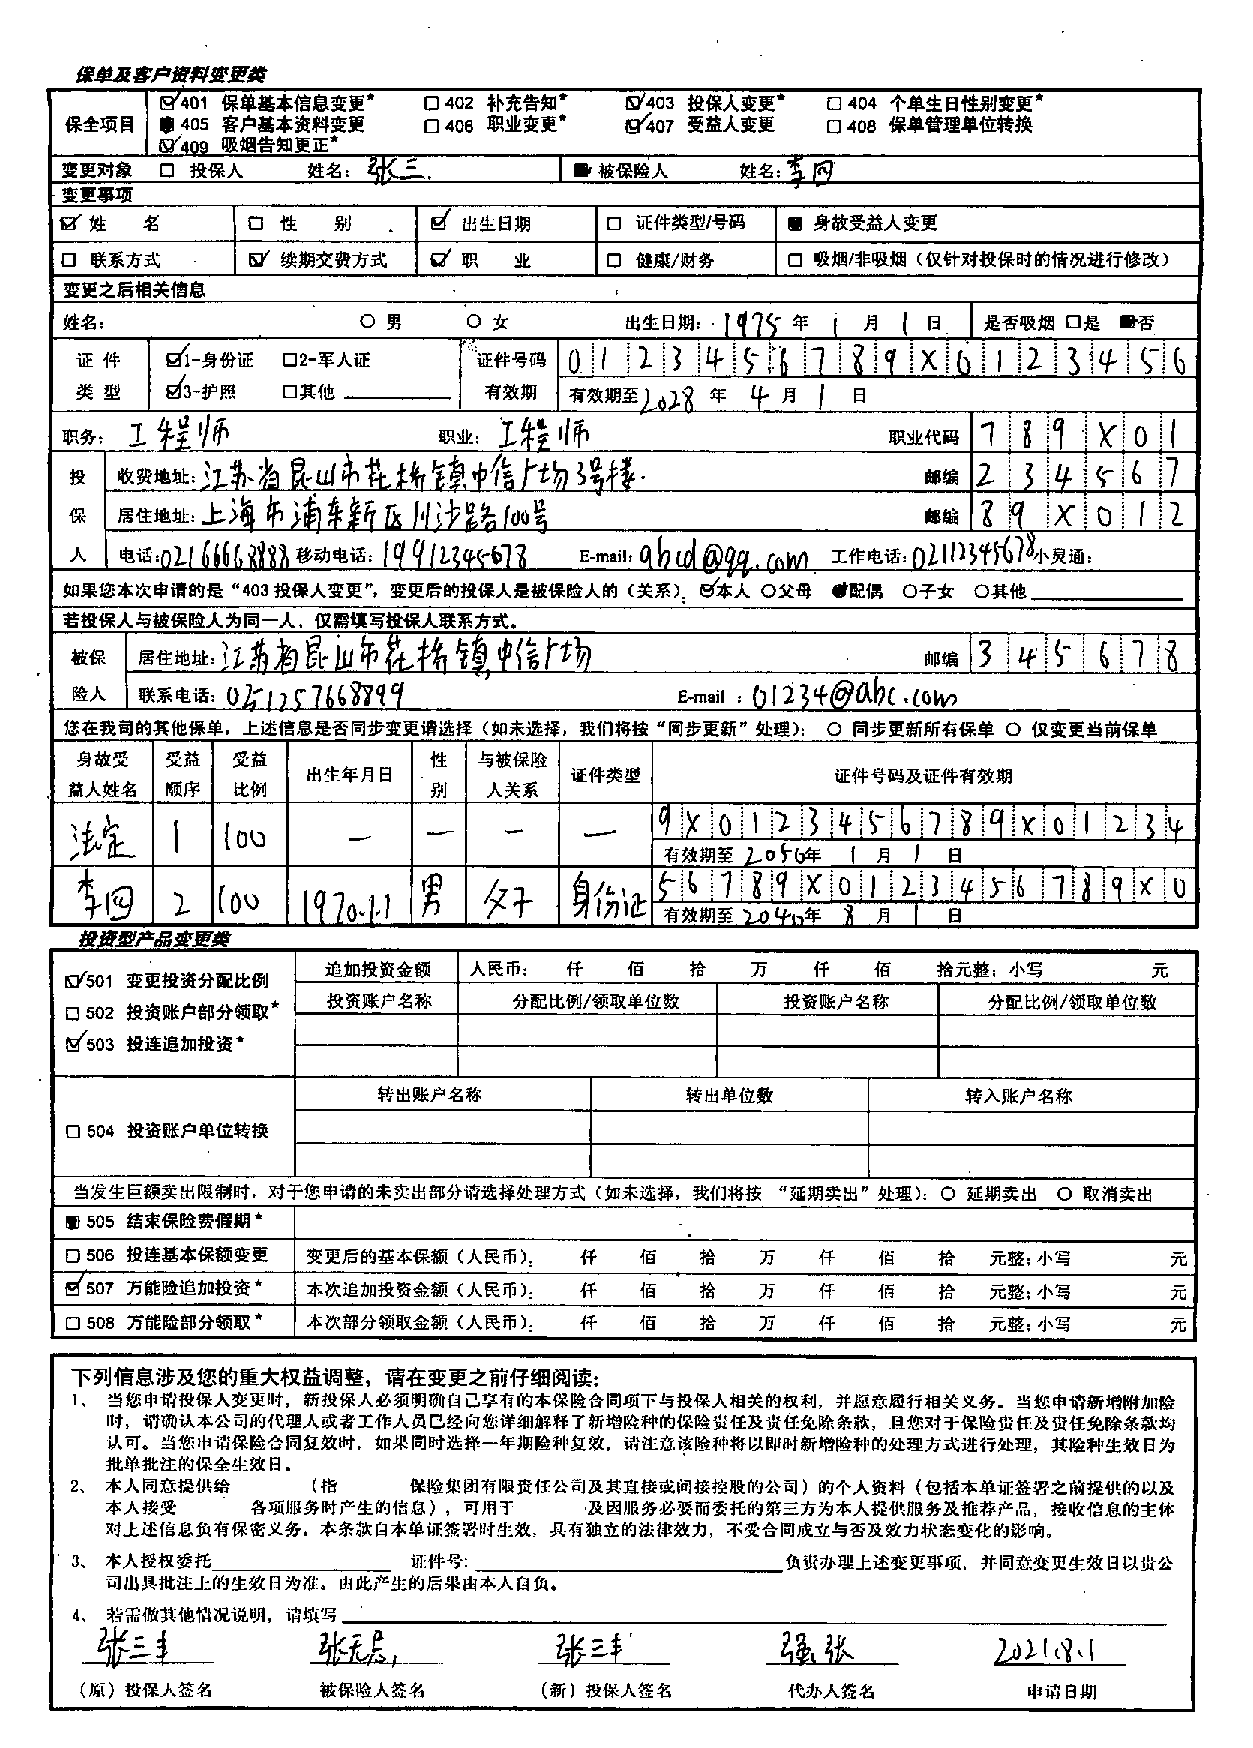 保单及客户资料变更类
保全项目 ☑401 保单基本信息变更* □402 补充告知* ☑403 投保人变更* □404 个单生日性别变更*
■405 客户基本资料变更 □406 职业变更* ☑407 受益人变更 □408 保单管理单位转换
☑409 吸烟告知更正*
变更对象 □ 投保人 姓名：张三. ■被保险人 姓名：李四
变更事项
☑姓 名 □ 性 别 ☑ 出生日期 □ 证件类型/号码 ■ 身故受益人变更
□ 联系方式 ☑ 续期交费方式 ☑ 职 业 □ 健康/财务 □ 吸烟/非吸烟（仅针对投保时的情况进行修改）
变更之后相关信息
姓名： ○ 男 ○ 女 出生日期：1975 年 1 月 1 日 是否吸烟 □是 ■否
证 件 ☑1-身份证 □2-军人证 证件号码 0123456789X0123456
类 型 ☑3-护照 □其他 有效期 有效期至2028 年 4 月 1 日
职务：工程师 职业：工程师 职业代码 789X01
投 收费地址：江苏省昆山市花桥镇中信广场3号楼. 邮编 234567
保 居住地址：上海市浦东新区川沙路100号 邮编 89X012
人 电话：02166668888 移动电话：19912345678 E-mail：abcd@qq.com 工作电话：02112345678 小灵通：
如果您本次申请的是“403 投保人变更”，变更后的投保人是被保险人的（关系）：☑本人 ○父母 ●配偶 ○子女 ○其他
若投保人与被保险人为同一人，仅需填写投保人联系方式。
被保 居住地址：江苏省昆山市花桥镇中信广场 邮编 345678
险人 联系电话：051257668899 E-mail ：01234@abc.com
您在我司的其他保单，上述信息是否同步变更请选择（如未选择，我们将按“同步更新”处理）： ○ 同步更新所有保单 ○ 仅变更当前保单
身故受益人姓名 受益顺序 受益比例 出生年月日 性别 与被保险人关系 证件类型 证件号码及证件有效期
法定 1 100 — — — — 9X0123456789X01234
有效期至 2050年 1 月 1 日
李四 2 100 1970.1.1 男 父子 身份证 56789X0123456789X0
有效期至 2040年 8 月 1 日
投资型产品变更类
☑501 变更投资分配比例 追加投资金额 人民币： 仟 佰 拾 万 仟 佰 拾元整；小写 元
□ 502 投资账户部分领取* 投资账户名称 分配比例/领取单位数 投资账户名称 分配比例/领取单位数
☑503 投连追加投资*
转出账户名称 转出单位数 转入账户名称
□ 504 投资账户单位转换
当发生巨额卖出限制时，对于您申请的未实出部分请选择处理方式（如未选择，我们将按 “延期卖出”处理）：○ 延期卖出 ○ 取消卖出
■ 505 结束保险费假期*
□ 506 投连基本保额变更 变更后的基本保额（人民币）： 仟 佰 拾 万 仟 佰 拾 元整；小写 元
☑ 507 万能险追加投资* 本次追加投资金额（人民币）： 仟 佰 拾 万 仟 佰 拾 元整；小写 元
□ 508 万能险部分领取* 本次部分领取金额（人民币）： 仟 佰 拾 万 仟 佰 拾 元整；小写 元
下列信息涉及您的重大权益调整，请在变更之前仔细阅读：
1、 当您申请投保人变更时，新投保人必须明确自己享有的本保险合同项下与投保人相关的权利，并愿意履行相关义务。当您申请新增附加险
时，请确认本公司的代理人或者工作人员已经向您详细解释了新增险种的保险责任及责任免除条款，且您对于保险责任及责任免除条款均
认可。当您申请保险合同复效时，如果同时选择一年期险种复效，请注意该险种将以即时新增险种的处理方式进行处理，其险种生效日为
批单批注的保全生效日。
2、 本人同意提供给 （指 保险集团有限责任公司及其直接或间接控股的公司）的个人资料（包括本单证签署之前提供的以及
本人接受 各项服务时产生的信息），可用于 及因服务必要而委托的第三方为本人提供服务及推荐产品，接收信息的主体
对上述信息负有保密义务。本条款自本单证签署时生效，具有独立的法律效力，不受合同成立与否及效力状态变化的影响。
3、 本人授权委托 证件号： 负责办理上述变更事项，并同意变更生效日以贵公
司出具批注上的生效日为准。由此产生的后果由本人自负。
4、 若需做其他情况说明，请填写
张三丰 张无忌 张三丰 强张 2021.8.1
（原）投保人签名 被保险人签名 （新）投保人签名 代办人签名 申请日期